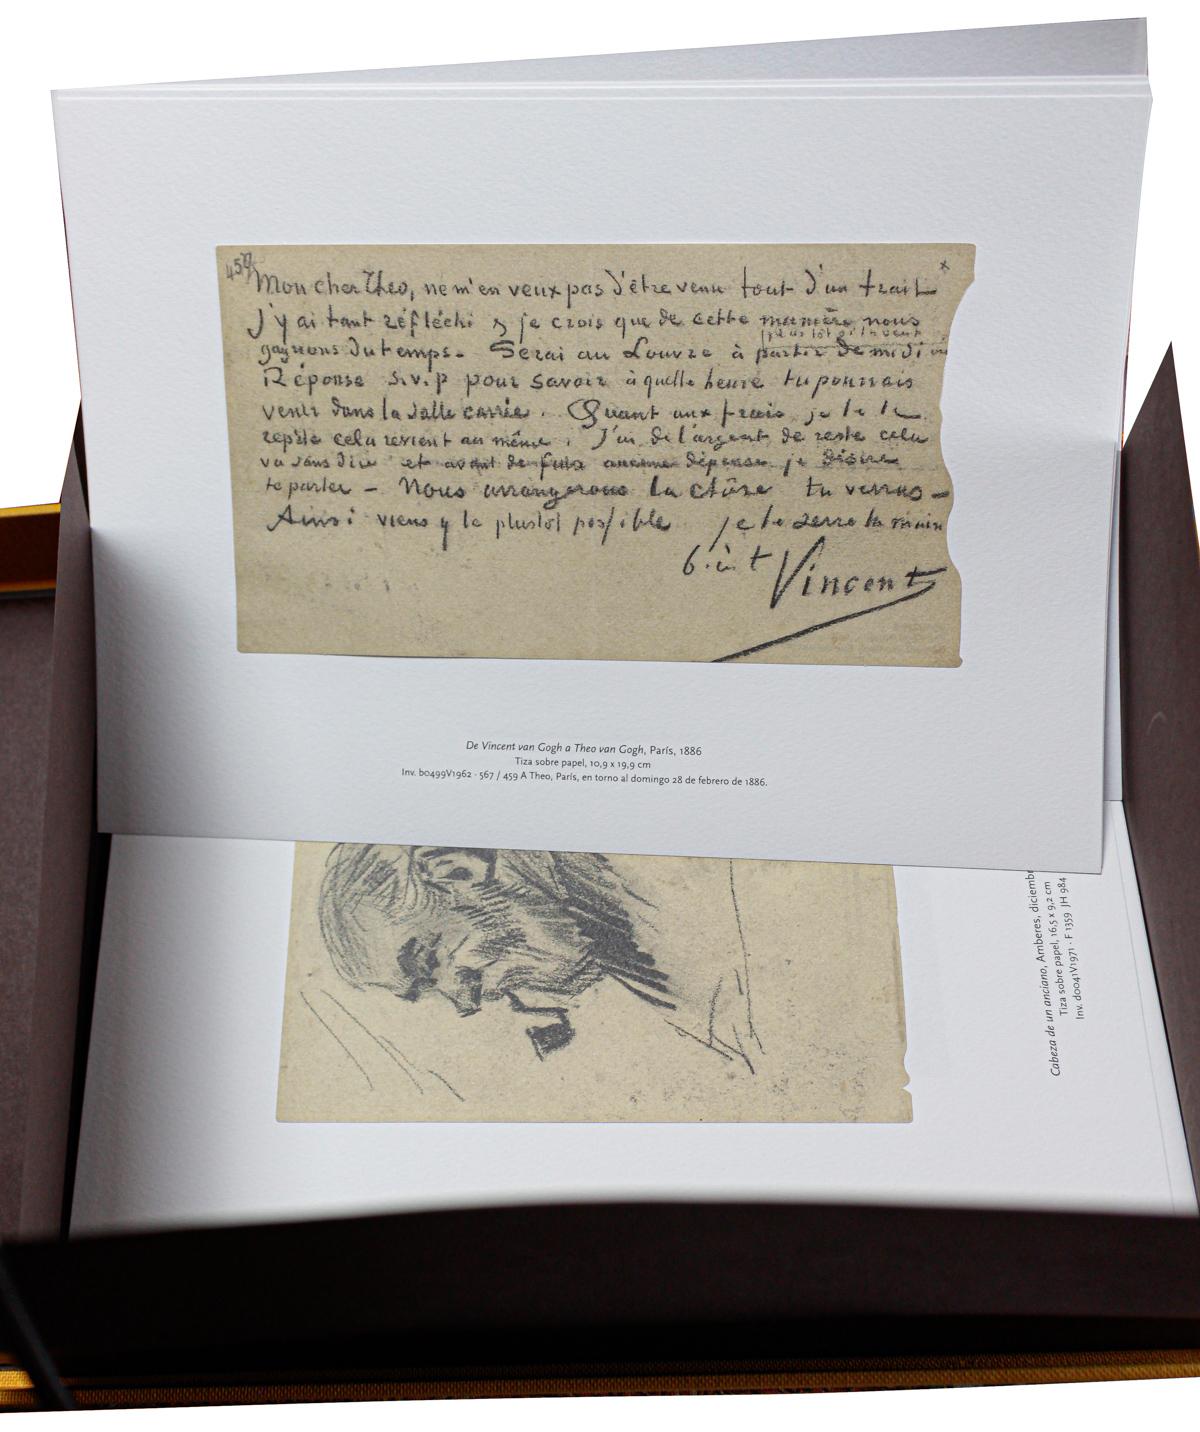 459
Mon cher Theo, ne m'en veux pas d'être venu tout d'un trait
J'y ai tant réfléchi & je crois que de cette manière nous
plus tôt si tu veux
gagnons du temps. Serai au Louvre à partir de midi
Réponse s.v.p pour savoir à quelle heure tu pourrais
venir dans la salle carrée. Quant aux frais je te le
repète cela revient au même. J'ai de l'argent de reste cela
va sans dire et avant de faire aucune dépense je désire
te parler – Nous arrangerons la chose tu verras –
Ainsi viens y le plustot possible je te serre la main
b. à t Vincent
De Vincent van Gogh a Theo van Gogh, París, 1886
Tiza sobre papel, 10,9 x 19,9 cm
Inv. b0499V1962 · 567 / 459 A Theo, París, en torno al domingo 28 de febrero de 1886.
Cabeza de un anciano, Amberes,
Tiza sobre papel, 16,5 x 9,2 cm
Inv. d0041V1971 · F 1359 JH 984